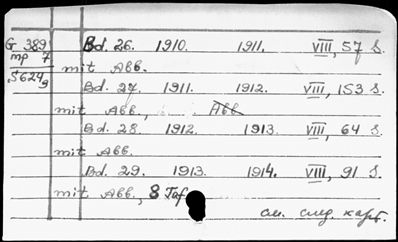 G 389 Bd. 26. 1910. 1911. VIII, 57 S.
mp 7
mit Abb.
S624 9 Bd. 27. 1911. 1912. VIII, 153 S.
mit Abb., Abb
Bd. 28. 1912. 1913. VIII, 64 S.
mit Abb.
Bd. 29. 1913. 1914. VIII, 91 S.
mit Abb., 8 Taf
см. след. карт.